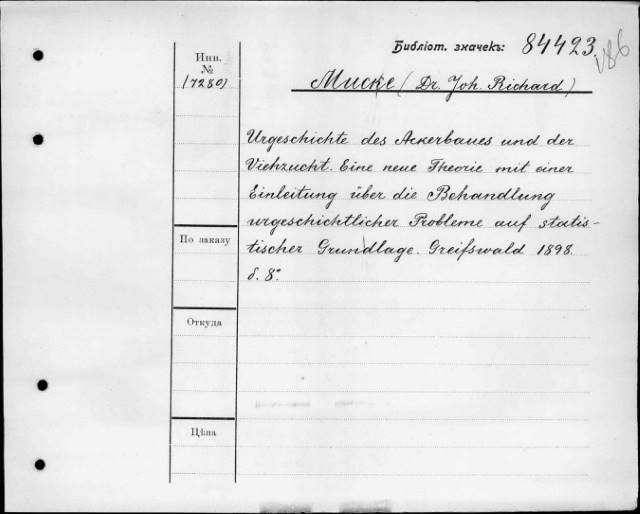 Библіот. значекъ: 84423
186
Инв.
№
(7280)
Mucke (Dr. Joh. Richard)
Urgeschichte des Ackerbaues und der
Viehzucht. Eine neue Theorie mit einer
Einleitung über die Behandlung
urgeschichtlicher Probleme auf statis-
tischer Grundlage. Greifswald 1898.
б. 8°
По заказу
Откуда
Цѣна